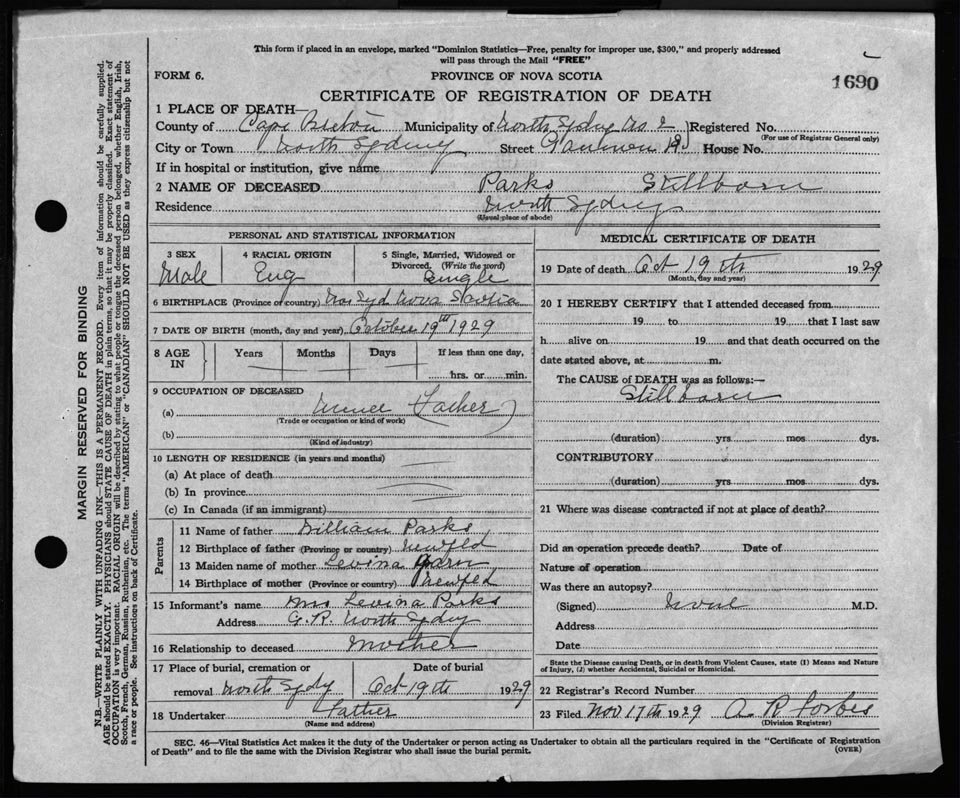 This form if placed in an envelope, marked "Dominion Statistics—Free, penalty for improper use, $300," and properly addressed
will pass through the Mail "FREE"
FORM 6.
PROVINCE OF NOVA SCOTIA
1690
CERTIFICATE OF REGISTRATION OF DEATH
1 PLACE OF DEATH—
County of Cape Breton Municipality of North Sydney No 2 Registered No.
(For use of Registrar General only)
City or Town North Sydney Street House No.
If in hospital or institution, give name
2 NAME OF DECEASED Parks Stillborn
Residence North Sydney
(Usual place of abode)
PERSONAL AND STATISTICAL INFORMATION
3 SEX 4 RACIAL ORIGIN 5 Single, Married, Widowed or
Divorced. (Write the word)
Male Eng Single
6 BIRTHPLACE (Province or country) No Syd Nova Scotia
7 DATE OF BIRTH (month, day and year) October 19th 1929
8 AGE IN Years Months Days If less than one day,
hrs. or min.
9 OCCUPATION OF DECEASED
(a) Father
(Trade or occupation or kind of work)
(b)
(Kind of industry)
10 LENGTH OF RESIDENCE (in years and months)
(a) At place of death
(b) In province
(c) In Canada (if an immigrant)
Parents
11 Name of father William Parks
12 Birthplace of father (Province or country) Newfld
13 Maiden name of mother Levina
14 Birthplace of mother (Province or country) Newfld
15 Informant's name Mrs Levina Parks
Address G.R. North Sydney
16 Relationship to deceased Mother
17 Place of burial, cremation or Date of burial
removal North Sydy Oct 19th 1929
18 Undertaker Father
(Name and address)
MEDICAL CERTIFICATE OF DEATH
19 Date of death Oct 19th 1929
(Month, day and year)
20 I HEREBY CERTIFY that I attended deceased from
19 to 19 that I last saw
h alive on 19 and that death occurred on the
date stated above, at m.
The CAUSE of DEATH was as follows:—
Stillborn
(duration) yrs mos dys.
CONTRIBUTORY
(duration) yrs mos dys.
21 Where was disease contracted if not at place of death?
Did an operation precede death? Date of
Nature of operation
Was there an autopsy?
(Signed) None M.D.
Address
Date
State the Disease causing Death, or in death from Violent Causes, state (1) Means and Nature
of Injury, (2) whether Accidental, Suicidal or Homicidal.
22 Registrar's Record Number
23 Filed Nov 17th 1929 A R Forbes
(Division Registrar)
SEC. 46—Vital Statistics Act makes it the duty of the Undertaker or person acting as Undertaker to obtain all the particulars required in the "Certificate of Registration
of Death" and to file the same with the Division Registrar who shall issue the burial permit.
(OVER)
MARGIN RESERVED FOR BINDING
N.B.—WRITE PLAINLY WITH UNFADING INK—THIS IS A PERMANENT RECORD. Every item of information should be carefully supplied.
AGE should be stated EXACTLY. PHYSICIANS should STATE CAUSE OF DEATH in plain terms, so that it may be properly classified. Exact statement of
OCCUPATION is very important. RACIAL ORIGIN will be described by stating to what people or tongue the deceased person belonged, whether English, Irish,
Scotch, French, German, Russian, Ruthenian, etc. The terms "AMERICAN" or "CANADIAN" SHOULD NOT BE USED as they express citizenship but not
a race or people. See instructions on back of Certificate.